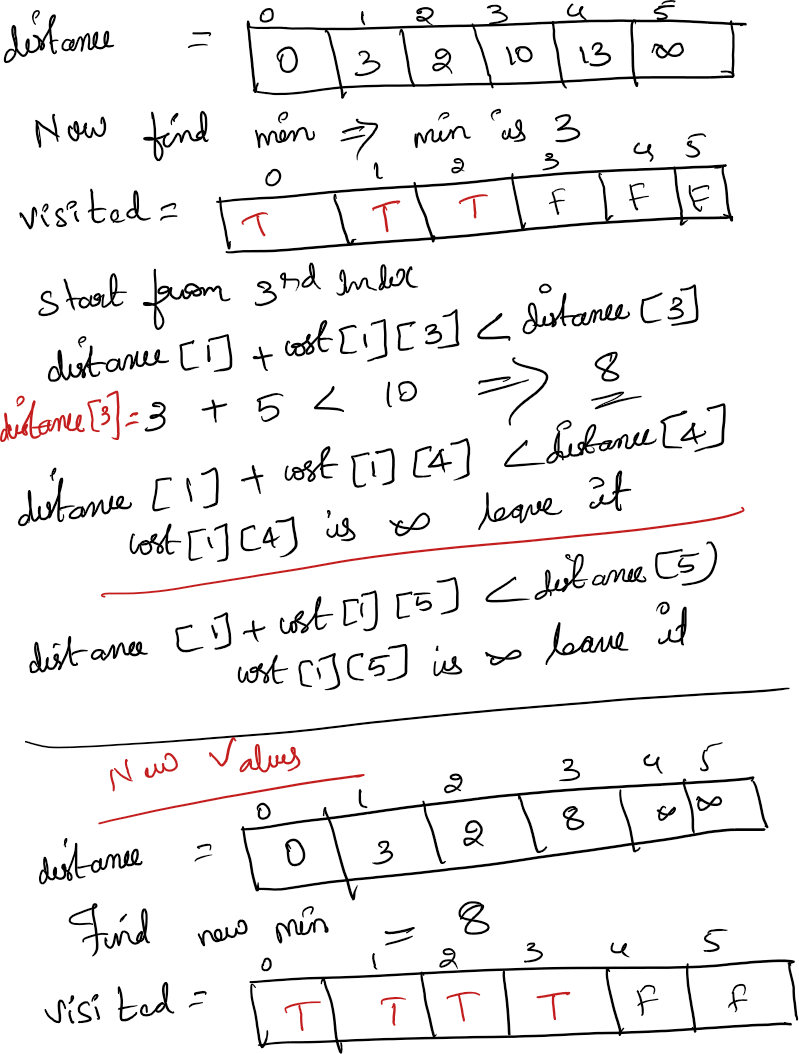 0 1 2 3 4 5
distance = 0 3 2 10 13 ∞
Now find min => min is 3
0 1 2 3 4 5
visited = T T T F F F
Start from 3rd Index
distance [1] + cost [1] [3] < distance [3]
distance [3] = 3 + 5 < 10 => 8
distance [1] + cost [1] [4] < distance [4]
cost [1] [4] is ∞ leave it
distance [1] + cost [1] [5] < distance [5)
cost [1] [5] is ∞ leave it
New Values
0 1 2 3 4 5
distance = 0 3 2 8 ∞ ∞
Find new min = 8
0 1 2 3 4 5
visited = T T T T F F